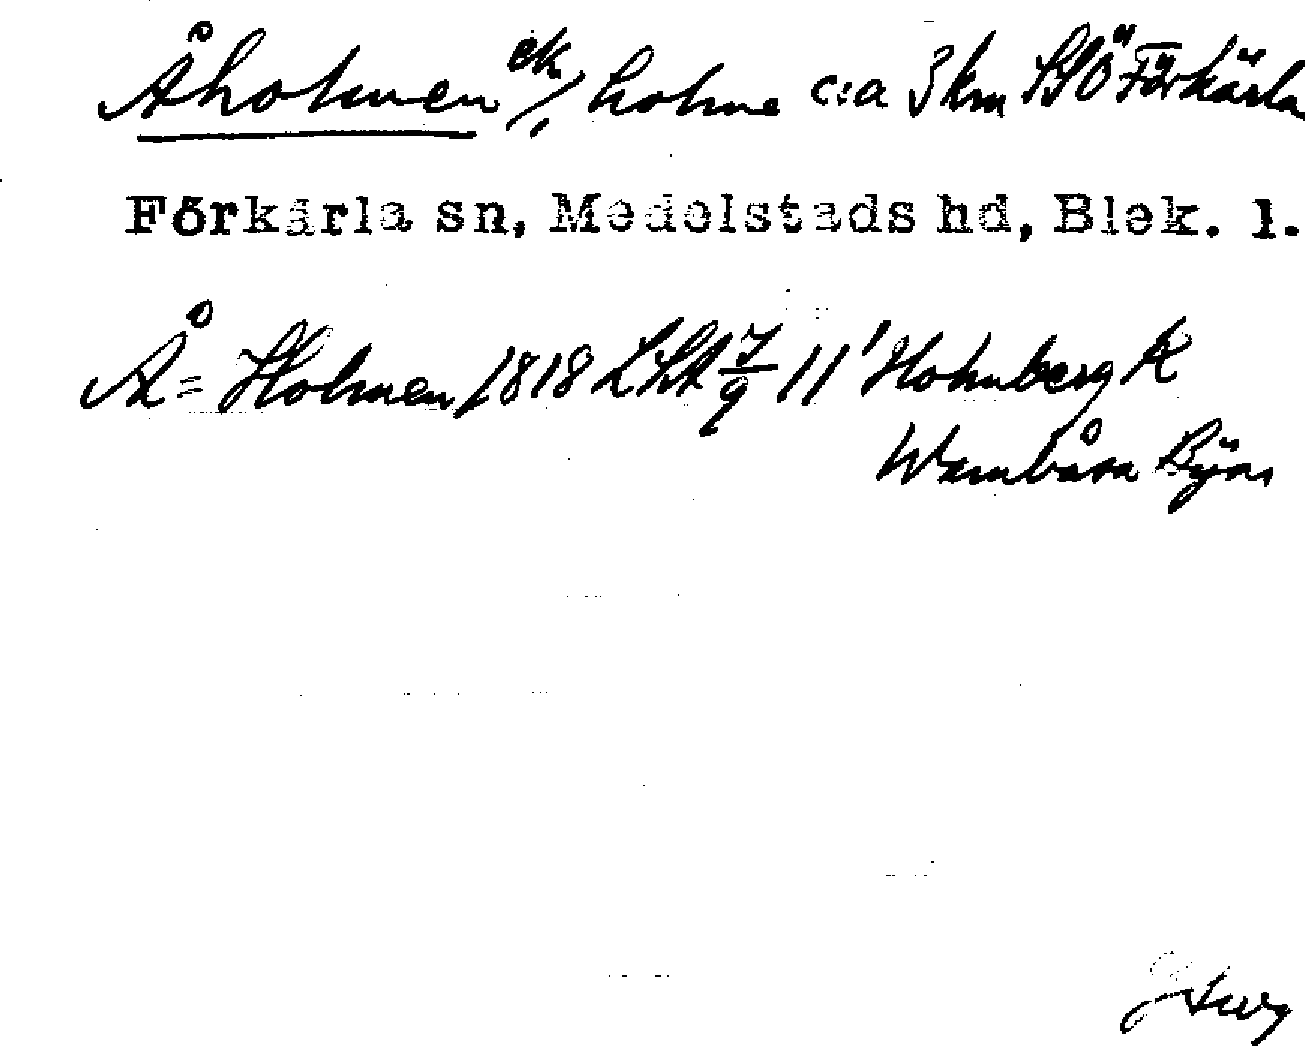 Åholmen ek/. holme c:a 3 km SSÖ Förkärla
Förkärla sn, Medelstads hd, Blek. l.
Å=Holmen 1818 LSA 7/9 11' Holmberg K
Wambåsa Byns